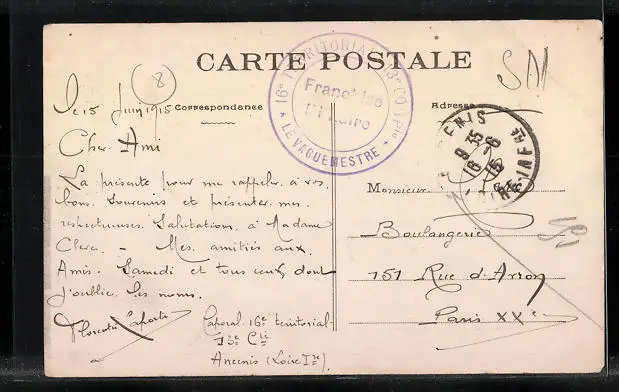 CARTE POSTALE
8
SM
16e TERRITORIAL 13e Cie
Franchise
Militaire
★ LE VAGUEMESTRE ★
Correspondance
Adresse
ANCENIS
9 35
16-6
15
LOIRE INFRE
le 15 Juin 1915
Cher Ami
La présente pour me rappeler à vos
bons souvenirs et présenter mes
respectueuses Salutations à Madame
Clerc - Mes amitiés aux
Amis Samedi et tous ceux dont
j'oublie les noms.
Laporte
Caporal 16e territorial
13e Cie
Ancenis (Loire Ire)
Monsieur
Boulangerie
151 Rue d'Avron
Paris XXe